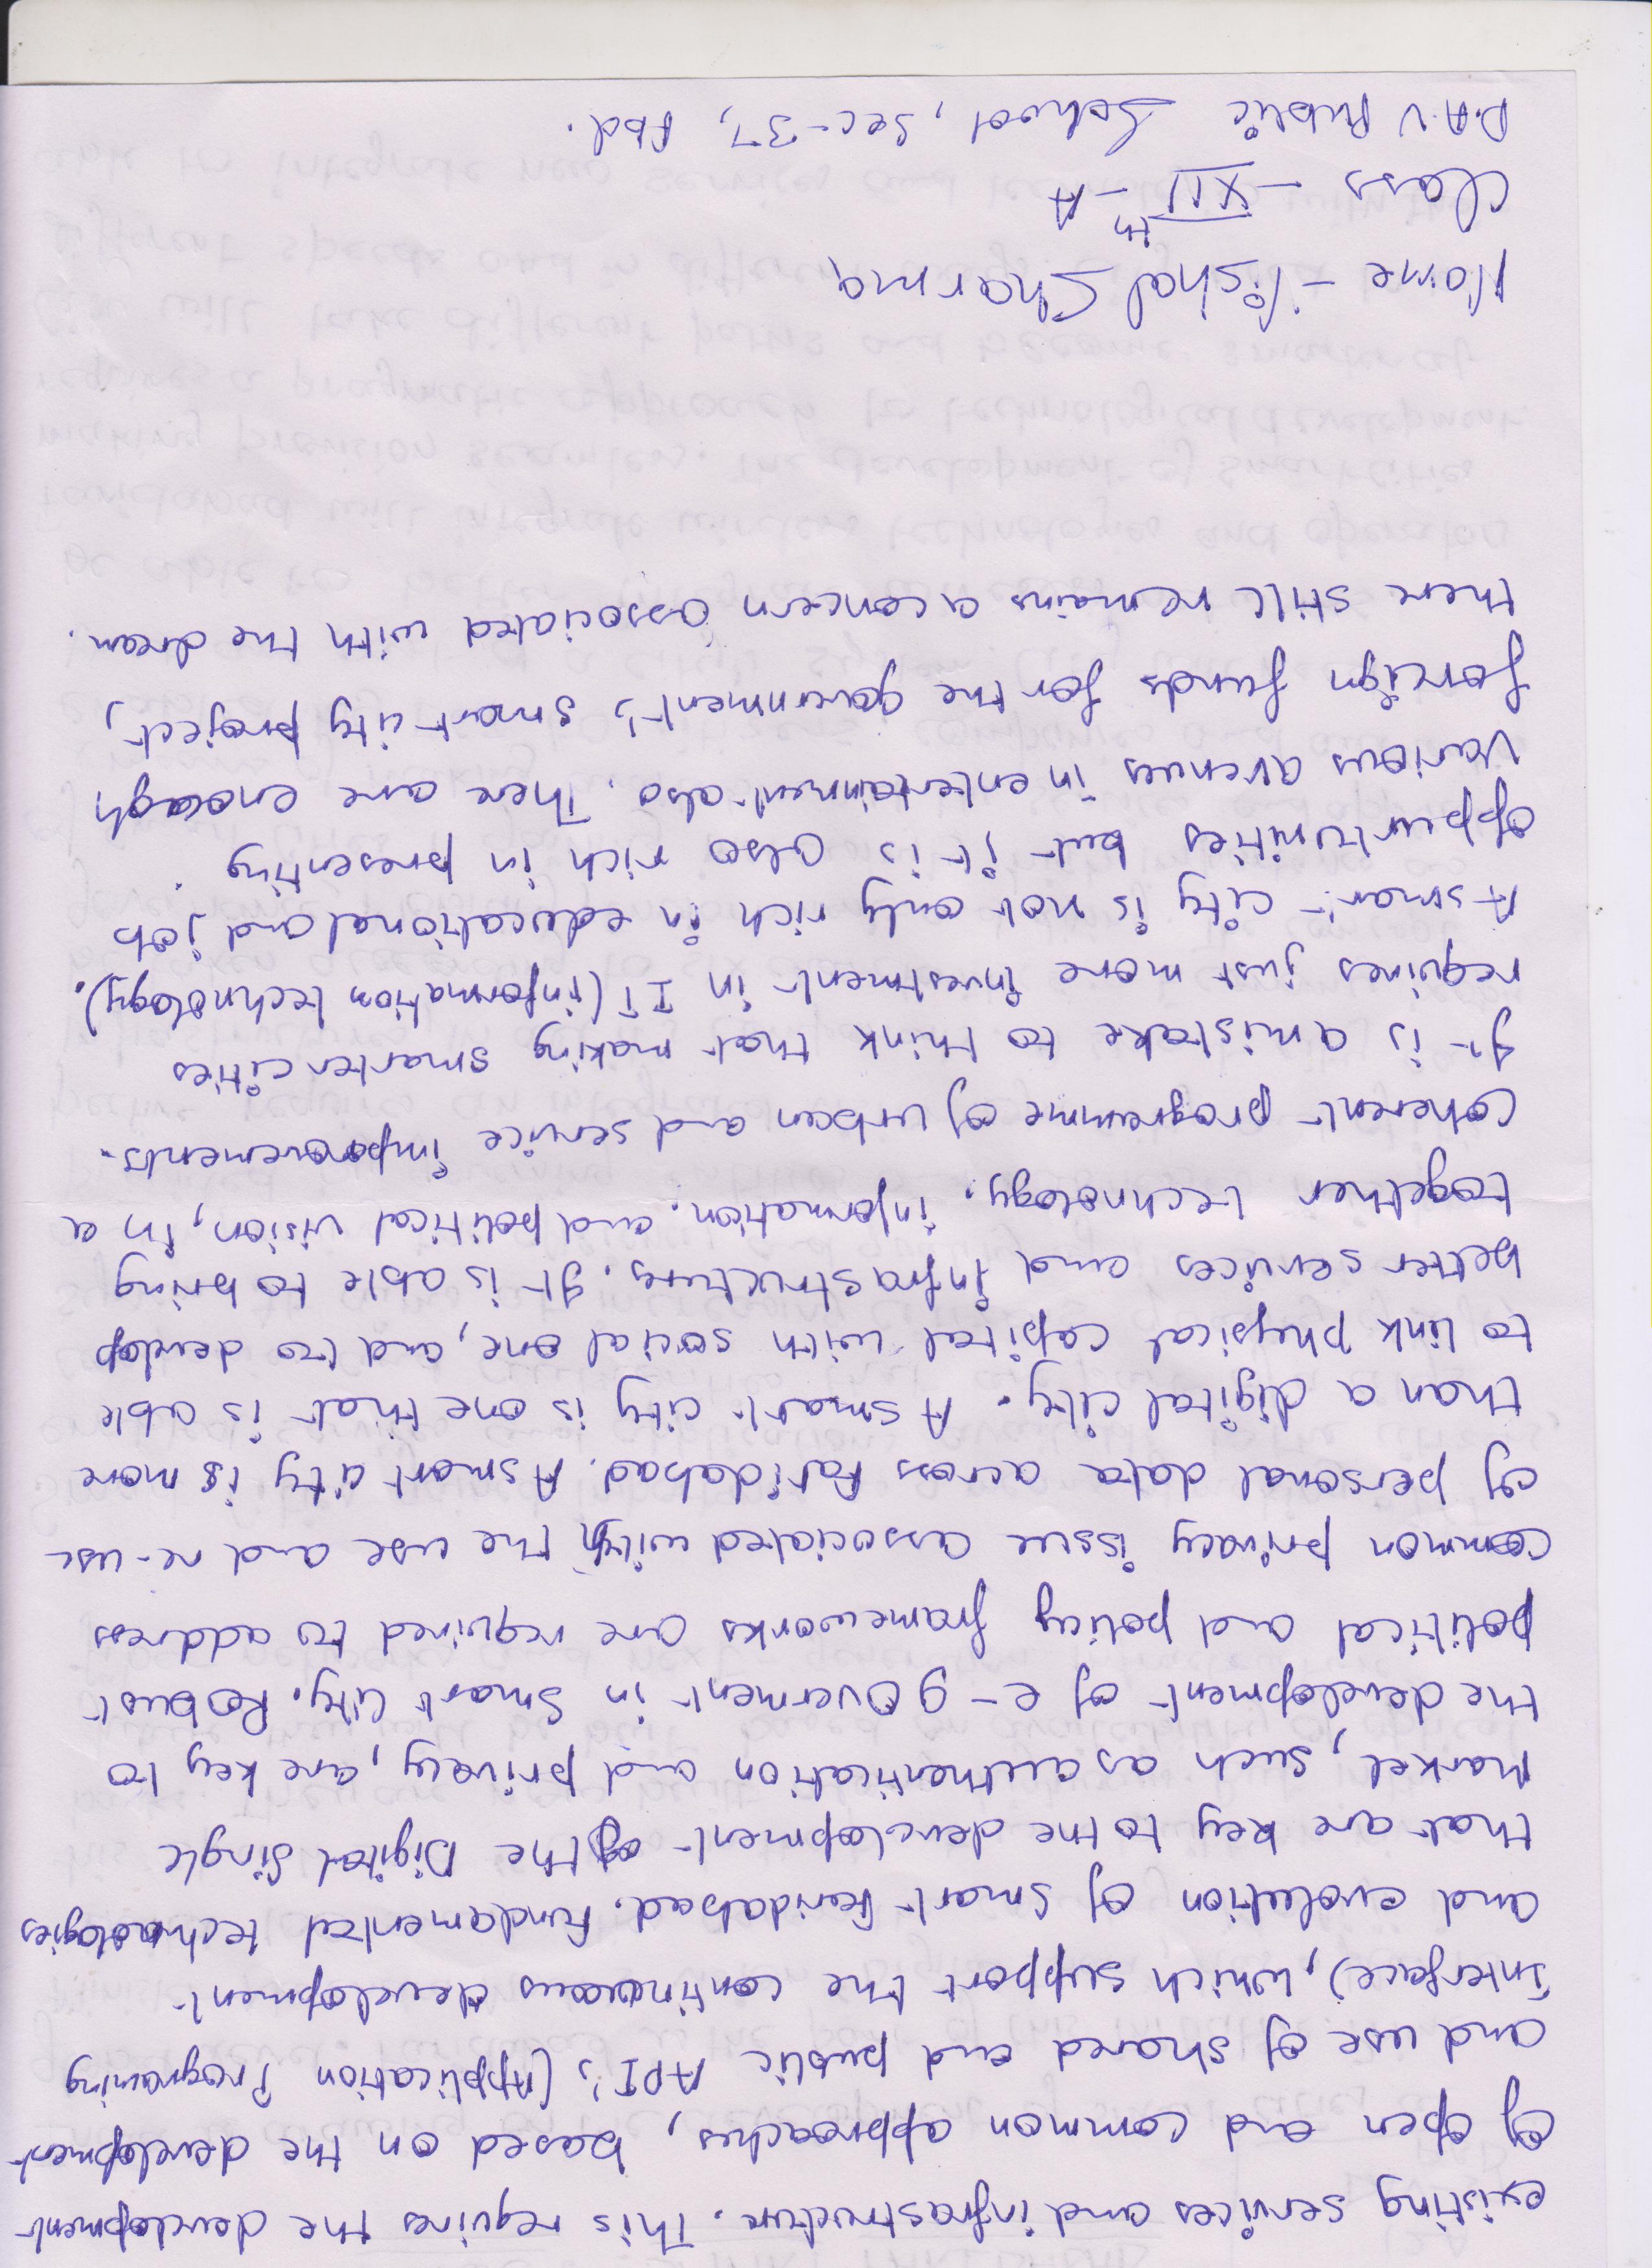 existing services and infrastructure. This requires the development
of open and common approaches, based on the development
and use of shared and public API's (Application Programing
Interface), which support the continuous development
and evolution of smart Faridabad. Fundamental technologies
that are key to the development of the Digital Single
Market, such as authentication and privacy, are key to
the development of e-goverment in smart city. Robust
political and policy frameworks are required to address
common privacy issue associated with the use and re-use
of personal data across Faridabad. A smart city is more
than a digital city. A smart city is one that is able
to link physical capital with social one, and to develop
better services and infrastructures. It is able to bring
together technology, information, and political vision, in a
coherent programme of urban and service improvements.
It is a mistake to think that making smarter cities
requires just more investment in IT (information technology).
A smart city is not only rich in educational and job
oppurtunities but it is also rich in presenting
various avenues in entertainment also. There are enough
foreign funds for the government's smart city project,
there still remains a concern associated with the dream.
Name - Vishal Sharma
Class - XII th - A
D.A.V Public School, Sec-37, Fbd.